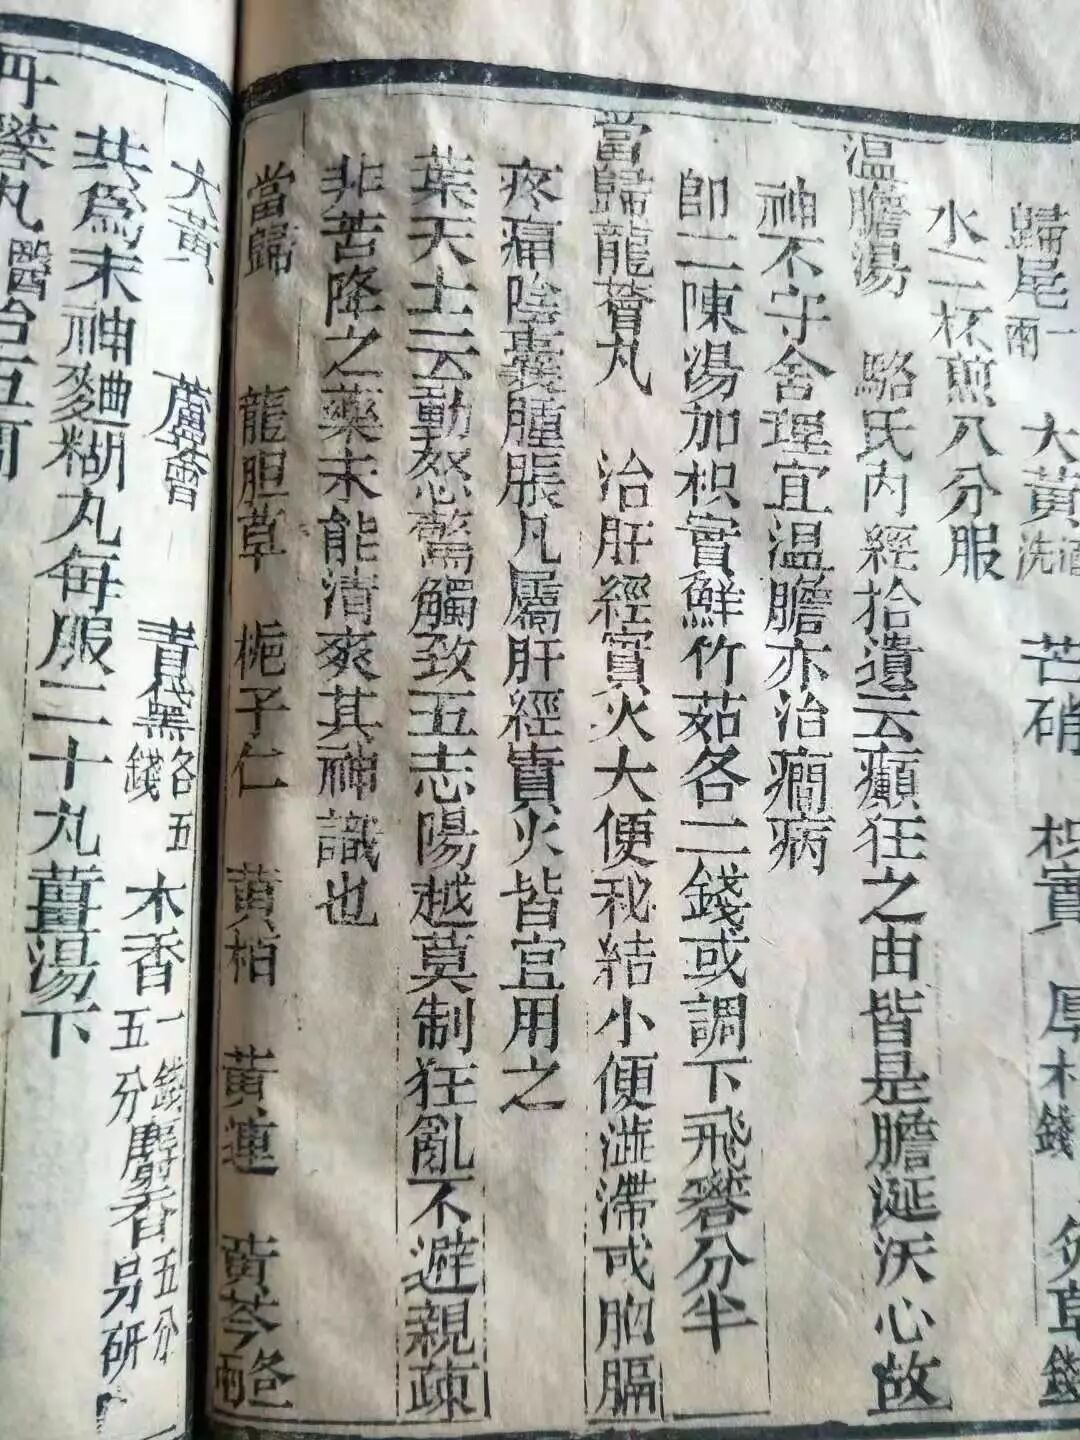 歸尾一兩　大黃酒洗　芒硝　枳實　厚朴錢　炙草錢
水二杯煎八分服
温膽湯　駱氏內經拾遺云癲狂之由皆是膽涎沃心故
神不守舍理宜温膽亦治癇病
卽二陳湯加枳實鮮竹茹各二錢或調下飛礬分半
當歸龍薈丸　治肝經實火大便秘結小便澁滯或胸膈
疼痛陰囊腫脹凡屬肝經實火皆宜用之
葉天士云動怒驚觸致五志陽越莫制狂亂不避親疎
非苦降之藥未能清爽其神識也
當歸　龍胆草　梔子仁　黃栢　黃連　黃芩各一兩
大黃　蘆薈　青黛各五錢　木香一錢五分　麝香五分另研
共為末神麯糊丸每服二十丸薑湯下
丹礬丸醫治五癎